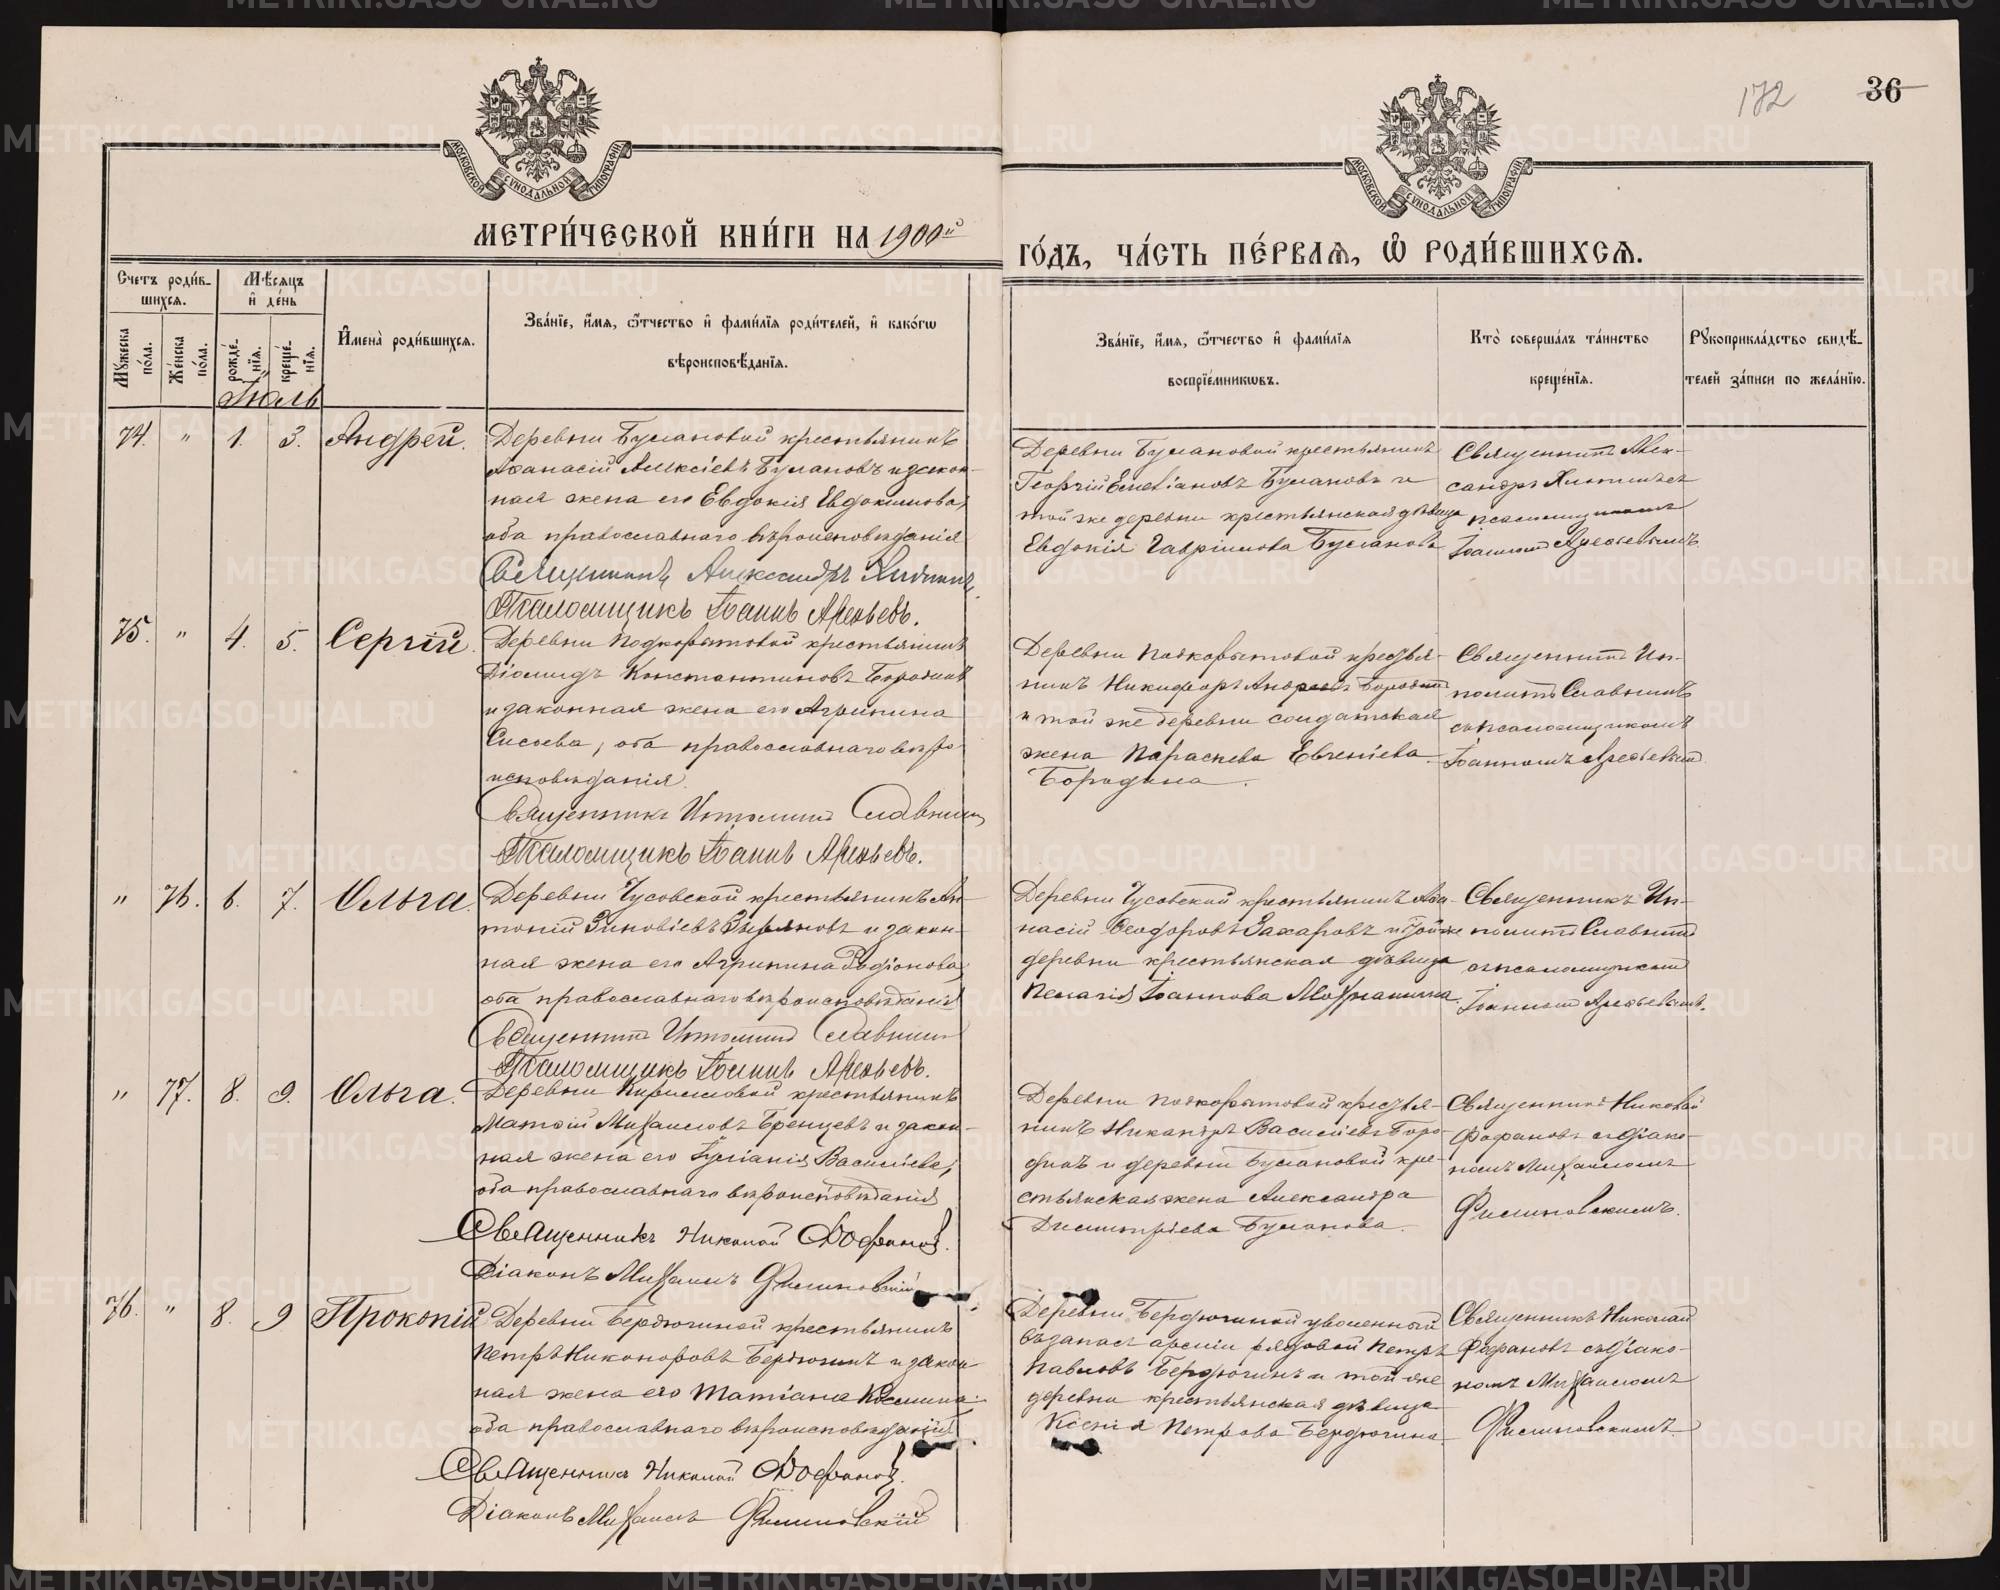 172
36
МОСКОВСКОЙ СУНОДАЛЬНОЙ ТИПОГРАФІИ
МОСКОВСКОЙ СУНОДАЛЬНОЙ ТИПОГРАФІИ
МЕТРИ́ЧЕСКОЙ КНИ́ГИ НА 1900й
ГО́ДЪ, ЧА́СТЬ ПЕ́РВАѦ, Ѽ РОДИ́ВШИХСѦ.
Счетъ роди́в-
шихсѧ.
Мѣсѧцъ
и де́нь
Мꙋжеска
по́ла.
Же́нска
по́ла.
рожде́-
нїѧ.
креще́-
нїѧ.
Имена̀ роди́вшихсѧ.
Зва́нїе, и́мѧ, ѻ҆́тчество и фами́лїѧ роди́телей, и како́гѡ
вѣроисповѣ́данїѧ.
Зва́нїе, и́мѧ, ѻ҆́тчество и фами́лїѧ
воспрїе́мникѡвъ.
Кто̀ соверша́лъ та́инство
креще́нїѧ.
Рꙋкоприкла́дство свидѣ́-
телей за́писи по жела́нїю.
Іюль
74. " 1. 3. Андрей.
Деревни Булановой крестьянинъ
Аѳанасій Алексіевъ Булановъ и закон-
ная жена его Евдокія Евдокимова,
оба православнаго вѣроисповѣданія
Священникъ Александръ
Псаломщикъ Іоаннъ Арефьевъ.
Деревни Булановой крестьянинъ
Георгій Емеліановъ Булановъ и
той же деревни крестьянская дѣвица
Евдокія Гавріилова Буланова
Священникъ Алек-
сандръ
псаломщикомъ
Іоанномъ Арефьевымъ
75. " 4. 5. Сергій.
Деревни Подкорытовой крестьянинъ
Діомидъ Константиновъ Бородинъ
и законная жена его Агрипина
Сисоева, оба православнаго вѣро-
исповѣданія.
Священникъ Ипполитъ Славнинъ
Псаломщикъ Іоаннъ Арефьевъ.
Деревни Подкорытовой крестья-
нинъ Никифоръ Андреевъ Бородинъ
и той же деревни солдатская
жена Параскева Евгеніева
Бородина.
Священникъ Ип-
политъ Славнинъ
съ псаломщикомъ
Іоанномъ Арефьевым
" 76. 6. 7. Ольга.
Деревни Чусовской крестьянинъ Ан-
тоній Зиновіевъ Зыряновъ и закон-
ная жена его Агрипина Родіонова,
оба православнаго вѣроисповѣданія
Священникъ Ипполитъ Славнинъ
Псаломщикъ Іоаннъ Арефьевъ.
Деревни Чусовской крестьянинъ Аѳа-
насій Ѳеодоровъ Захаровъ и той же
деревни крестьянская дѣвица
Пелагія Іоаннова
Священникъ Ип-
политъ Славнинъ
съ псаломщикомъ
Іоанномъ Арефьевымъ.
" 77. 8. 9. Ольга.
Деревни Кирилловой крестьянинъ
Матѳій Михаиловъ Бренцевъ и закон-
ная жена его Іуліанія Василіева,
оба православнаго вѣроисповѣданія
Священникъ Николай Фофановъ.
Діаконъ Михаилъ Филиновскій
Деревни Подкорытовой крестья-
нинъ Никандръ Василіевъ Боро-
динъ и деревни Булановой кре-
стьянская жена Александра
Димитріева Буланова.
Священникъ Николай
Фофановъ съ діако-
номъ Михаиломъ
Филиновскимъ.
76. " 8. 9 Прокопій
Деревни Бердюгиной крестьянинъ
Петръ Никоноровъ Бердюгинъ и закон-
ная жена его Татіана Космина,
оба православнаго вѣроисповѣданія
Священникъ Николай Фофановъ.
Діаконъ Михаилъ Филиновскій
Деревни Бердюгиной уволенный
въ запасъ арміи рядовой Петръ
Павловъ Бердюгинъ и той же
деревни крестьянская дѣвица
Ксенія Петрова Бердюгина.
Священникъ Николай
Фофановъ съ діако-
номъ Михаиломъ
Филиновскимъ.
METRIKI.GASO-URAL.RU